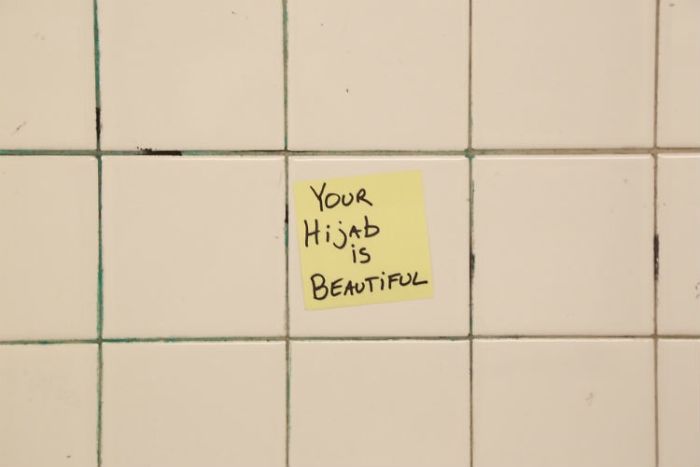 YOUR
Hijab
is
BEAUTiFUL